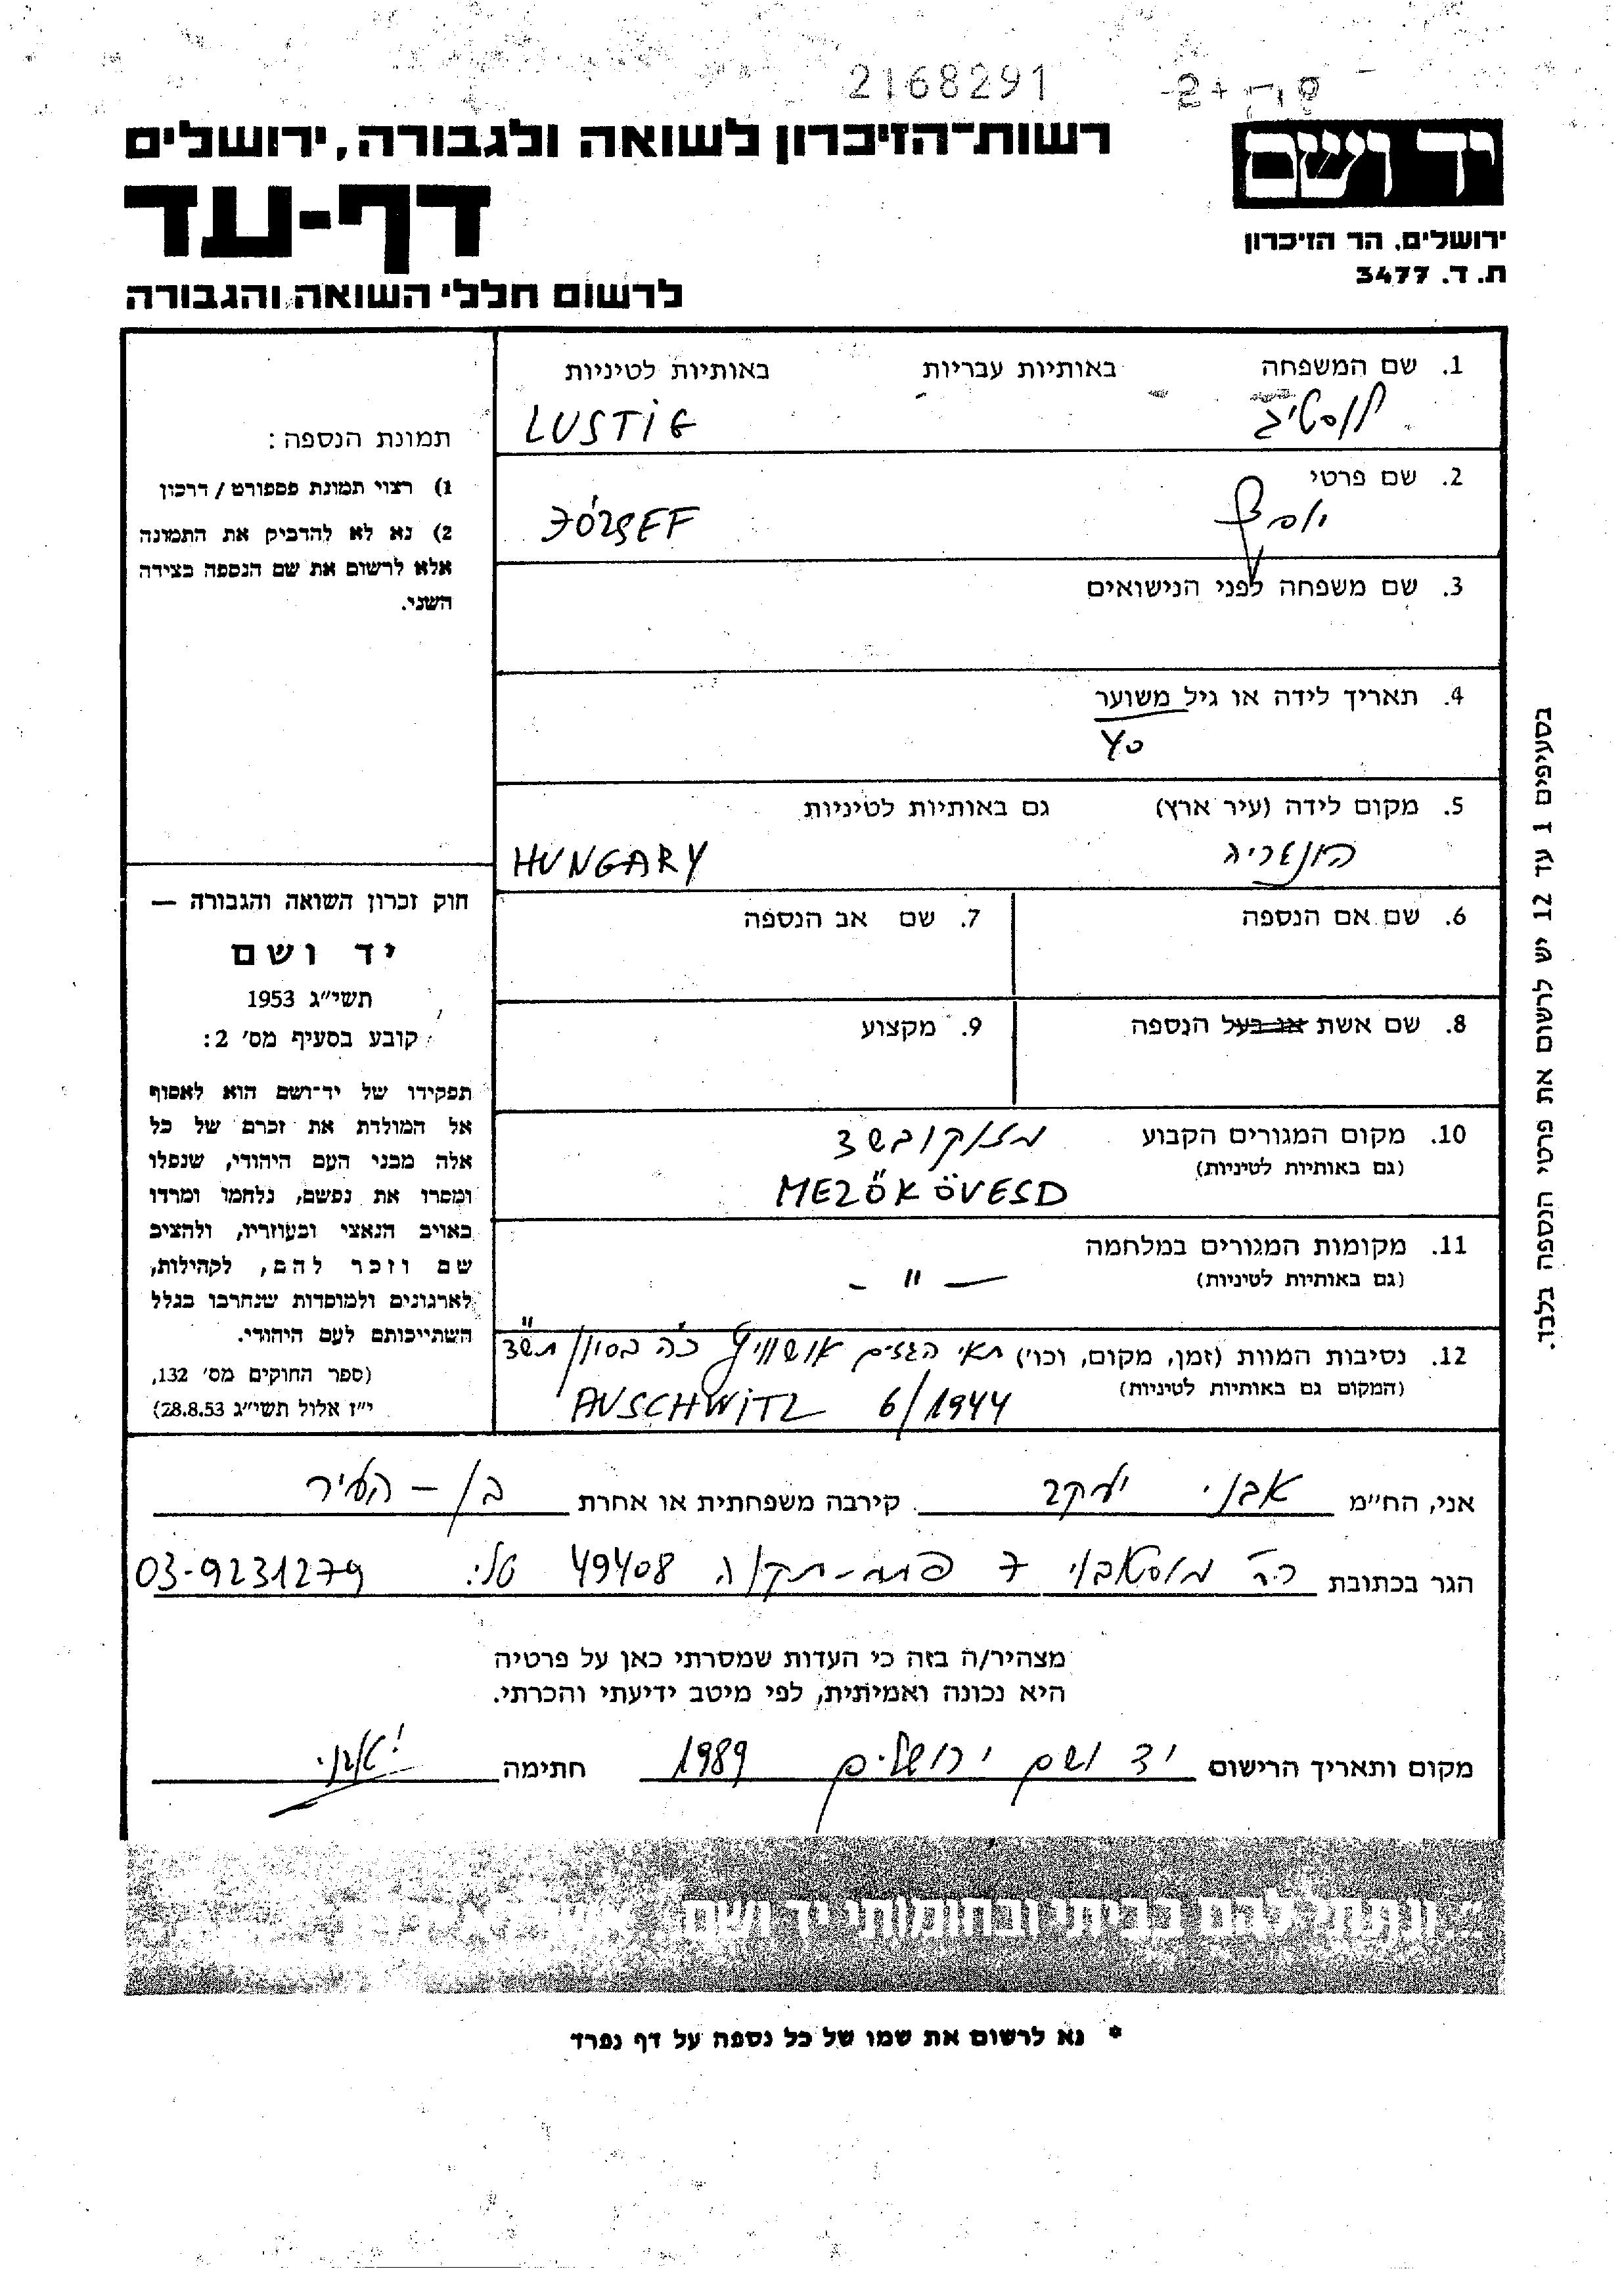 2168291
רשות־הזיכרון לשואה ולגבורה, ירושלים
יד ושם
דף-עד
ירושלים, הר הזיכרון
ת. ד. 3477
לרשום חללי השואה והגבורה
1. שם המשפחה באותיות עבריות באותיות לטיניות
לוסטיג LUSTIG
2. שם פרטי
יוסף JÓZSEF
3. שם משפחה לפני הנישואים
4. תאריך לידה או גיל משוער
5. מקום לידה (עיר ארץ) גם באותיות לטיניות
הונגריה HUNGARY
6. שם אם הנספה 7. שם אב הנספה
8. שם אשת או בעל הנספה 9. מקצוע
10. מקום המגורים הקבוע מזוקובשד
(גם באותיות לטיניות) MEZŐKÖVESD
11. מקומות המגורים במלחמה
(גם באותיות לטיניות) — " -
12. נסיבות המוות (זמן, מקום, וכו') תאי הגזים אושוויץ כ"ה בסיון תש"ד
(המקום גם באותיות לטיניות) 6/1944 AUSCHWITZ
תמונת הנספה:
1) רצוי תמונת פספורט / דרכון
2) נא לא להדביק את התמונה
אלא לרשום את שם הנספה בצידה
השני.
חוק זכרון השואה והגבורה —
יד ושם
תשי"ג 1953
קובע בסעיף מס' 2:
תפקידו של יד־ושם הוא לאסוף
אל המולדת את זכרם של כל
אלה מבני העם היהודי, שנפלו
ומסרו את נפשם, נלחמו ומרדו
באויב הנאצי ובעוזריו, ולהציב
שם וזכר להם, לקהילות,
לארגונים ולמוסדות שנחרבו בגלל
השתייכותם לעם היהודי.
(ספר החוקים מס' 132,
י"ז אלול תשי"ג 28.8.53)
בסעיפים 1 עד 12 יש לרשום את פרטי הנספה בלבד.
אני, הח"מ אבני יעקב קירבה משפחתית או אחרת בן - העיר
הגר בכתובת רח' 7 פתח-תקוה 49408 טל. 03-9231279
מצהיר/ה בזה כי העדות שמסרתי כאן על פרטיה
היא נכונה ואמיתית, לפי מיטב ידיעתי והכרתי.
מקום ותאריך הרישום יד ושם ירושלים 1989 חתימה י. אבני
ונתתי להם בביתי ובחומותי יד ושם
* נא לרשום את שמו של כל נספה על דף נפרד